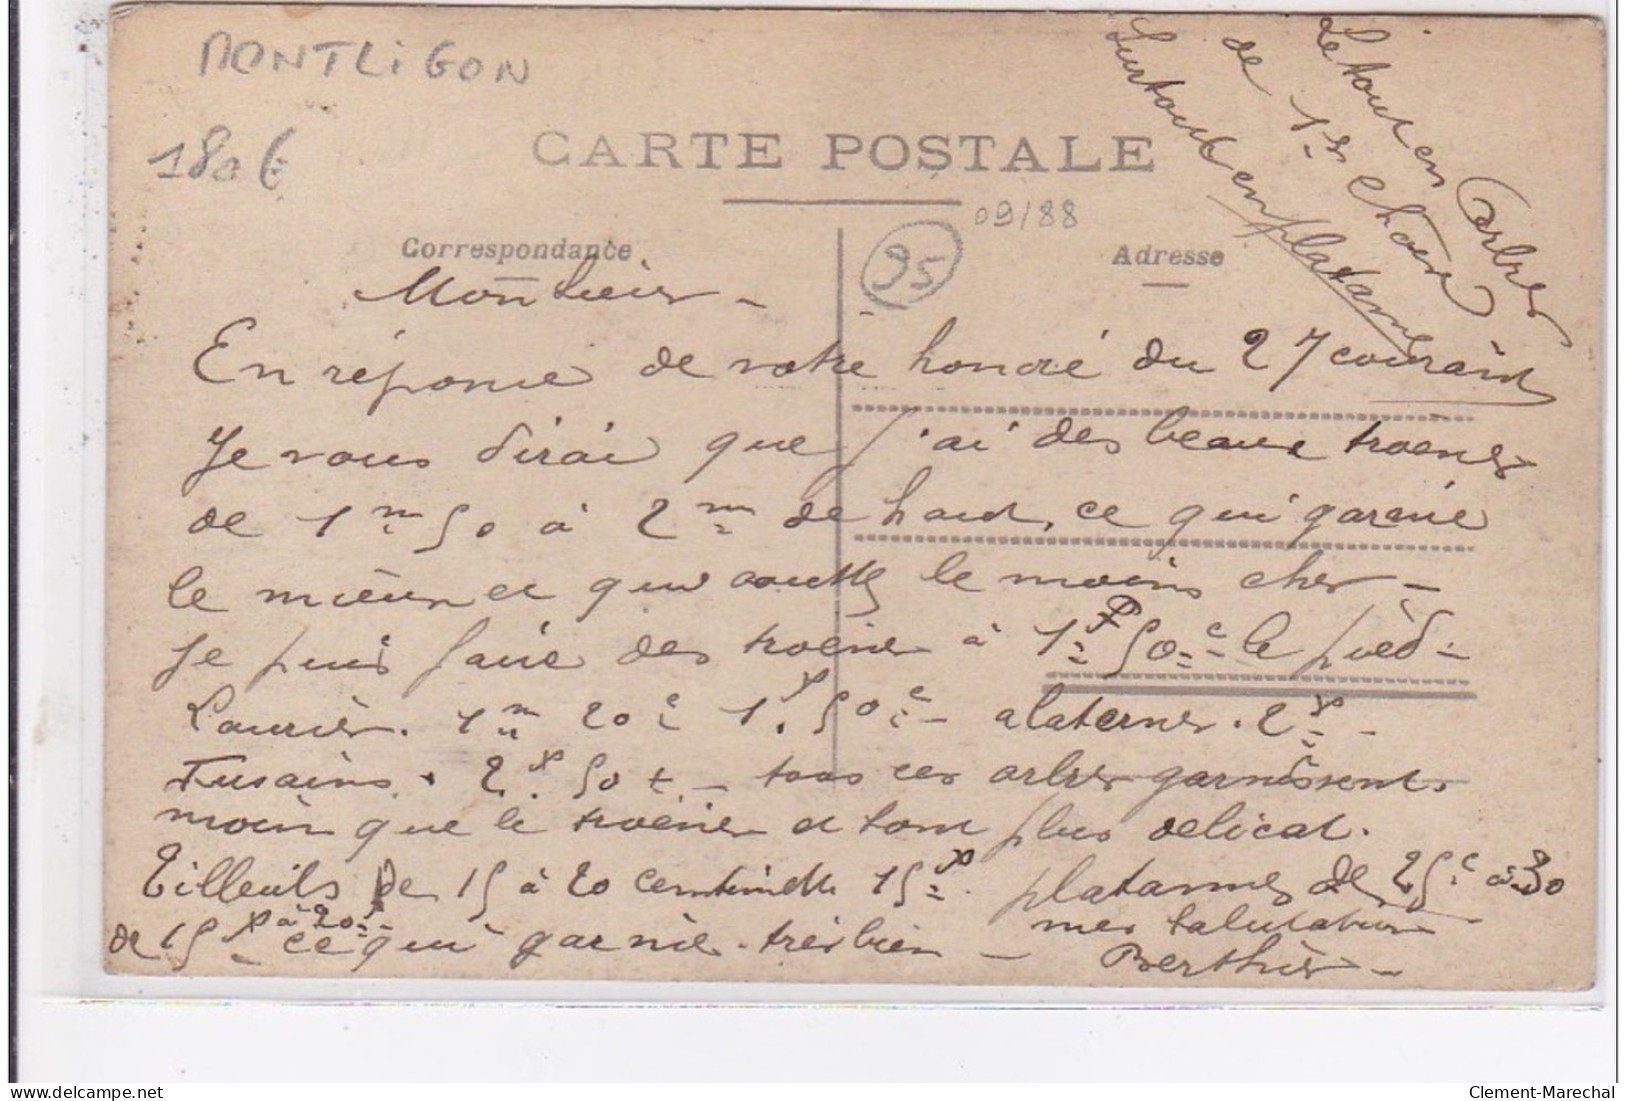 MONTLIGON
180€
CARTE POSTALE
09/88
95
Correspondance
Adresse
Le tout en arbres
de 1er choix
surtout en platanes
Monsieur -
En réponse de votre honoré du 27 courant
Je vous dirai que j'ai des beaux troenes
de 1m 50 à 2m de haut, ce qui garnie
le mieux et qui coutte le moins cher -
Je puis faire des troène à 1F 50c le pied -
Laurier. 1m 20c 1F 50c - alaternes. 2F -
Fusains. 2F 50 - tous ces arbres garnissent
moin que le troëne et sont plus delicat.
Tilleuils de 15 à 20 centimette 15F. platannes de 25c à 30
de 15F à 20F ce qui garnie très bien - mes salutations
Berthier -
Clement-Marechal
delcampe.net